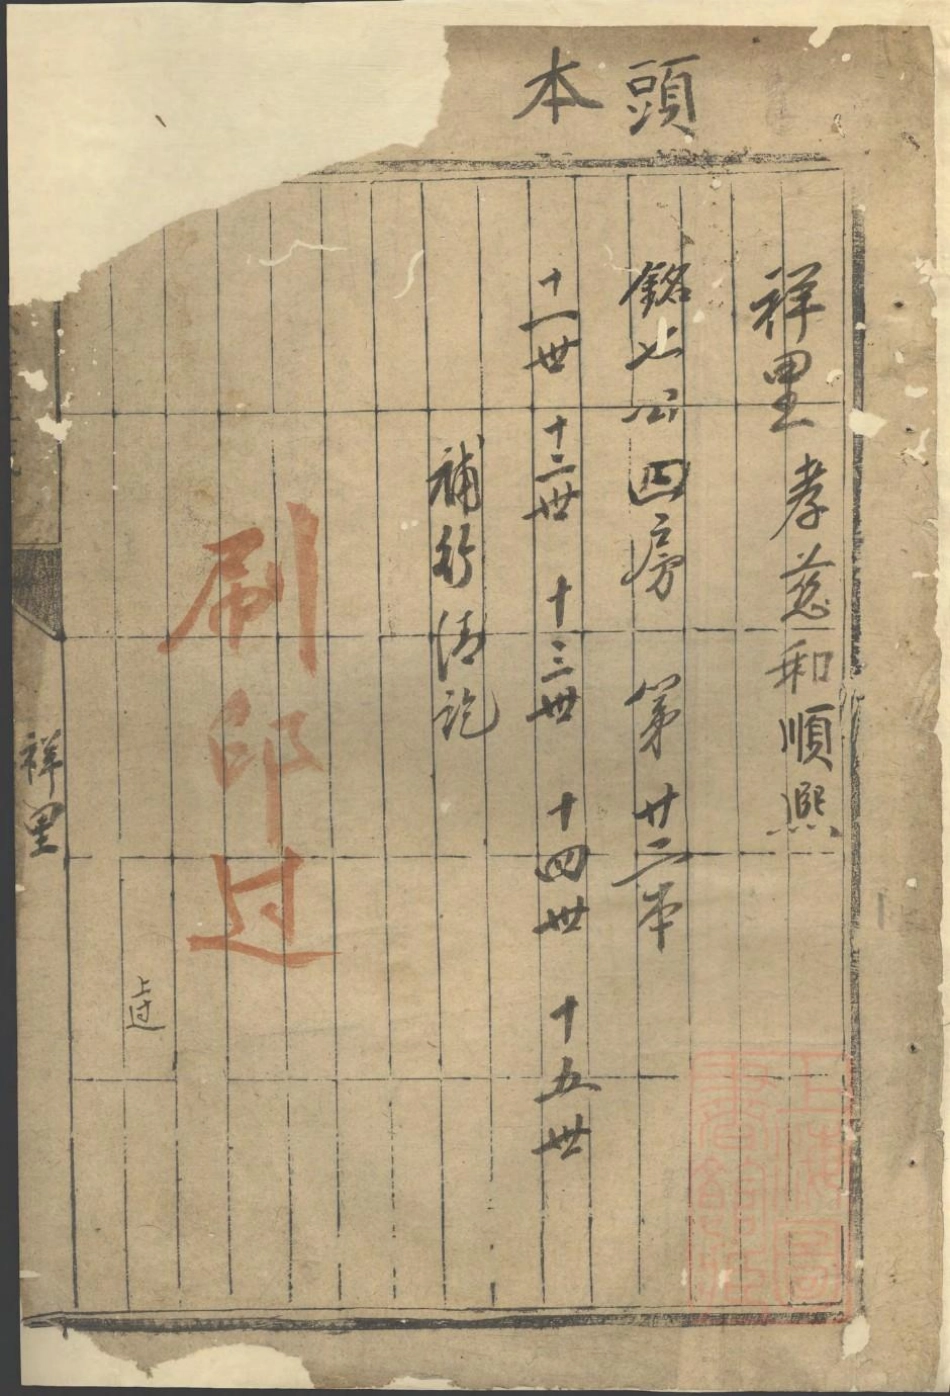 頭本
祥里 孝慈和順熙
銘七公四房 第廿二本
十一世 十二世 十三世 十四世 十五世
補行清訖
刷印过
上过
祥里